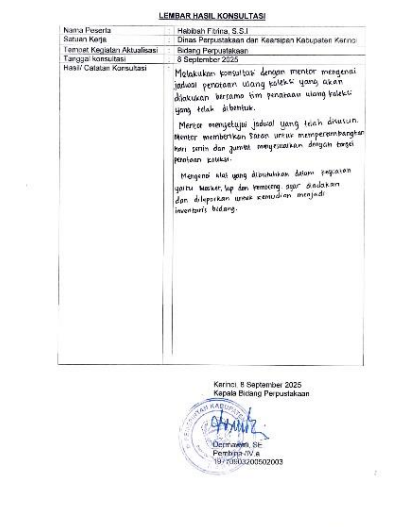 LEMBAR HASIL KONSULTASI
Nama Peserta : Habibah Fitrina, S.S.I
Satuan Kerja : Dinas Perpustakaan dan Kearsipan Kabupaten Kerinci
Tempat Kegiatan Aktualisasi : Bidang Perpustakaan
Tanggal konsultasi : 8 September 2025
Hasil/ Catatan Konsultasi : Melakukan konsultasi dengan mentor mengenai
jadwal penataan ulang koleksi yang akan
dilakukan bersama tim penataan ulang koleksi
yang telah dibentuk.
Mentor menyetujui jadwal yang telah disusun.
Mentor memberikan saran untuk mempertimbangkan
hari senin dan jumat menyesuaikan dengan target
penataan koleksi.
Mengenai alat yang dibutuhkan dalam kegiatan
yaitu Masker, lap dan kemoceng agar diadakan
dan dilaporkan untuk kemudian menjadi
inventaris bidang.
Kerinci, 8 September 2025
Kepala Bidang Perpustakaan
Dermawan, SE
Pembina /IV.a